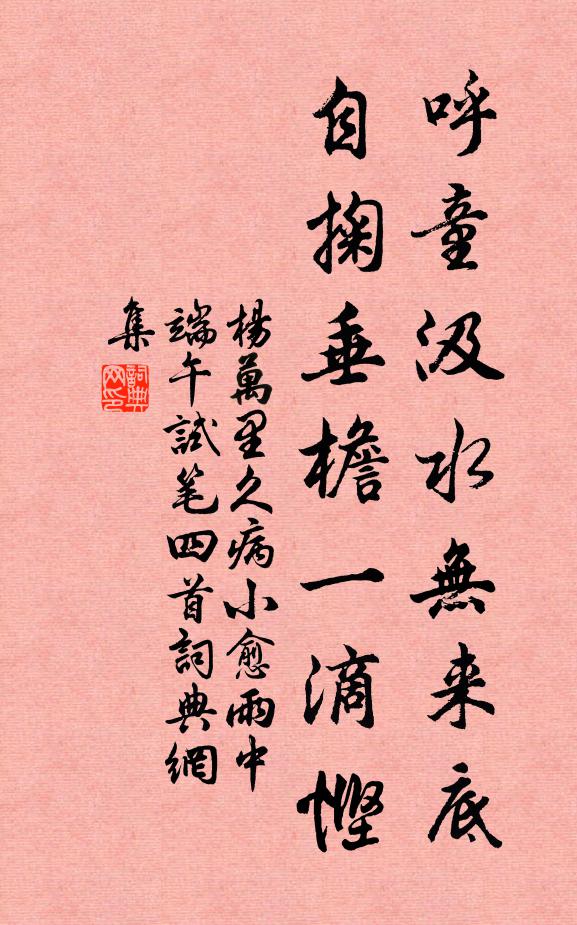 呼童汲水無来底
自掬垂檐一滴慳
楊萬里久病小愈雨中
端午試笔四首詞典網
集
詞典
网印